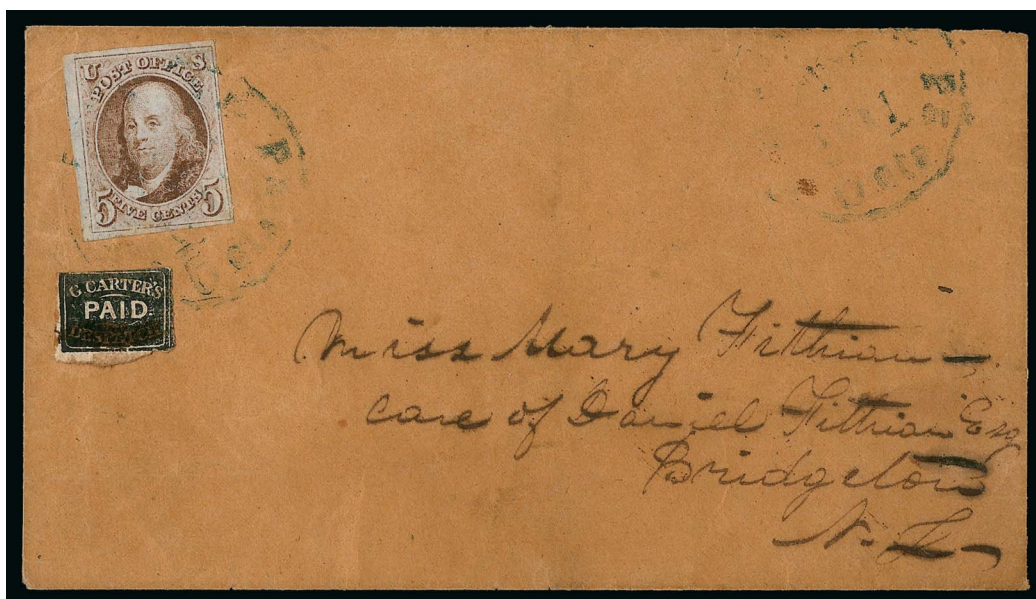 U S
POST OFFICE
5 FIVE CENTS 5
5 cts
G. CARTER'S
PAID.
DESPATCH
Miss Mary Fithian
care of Daniel Fithian Esq
Bridgeton
N. J.